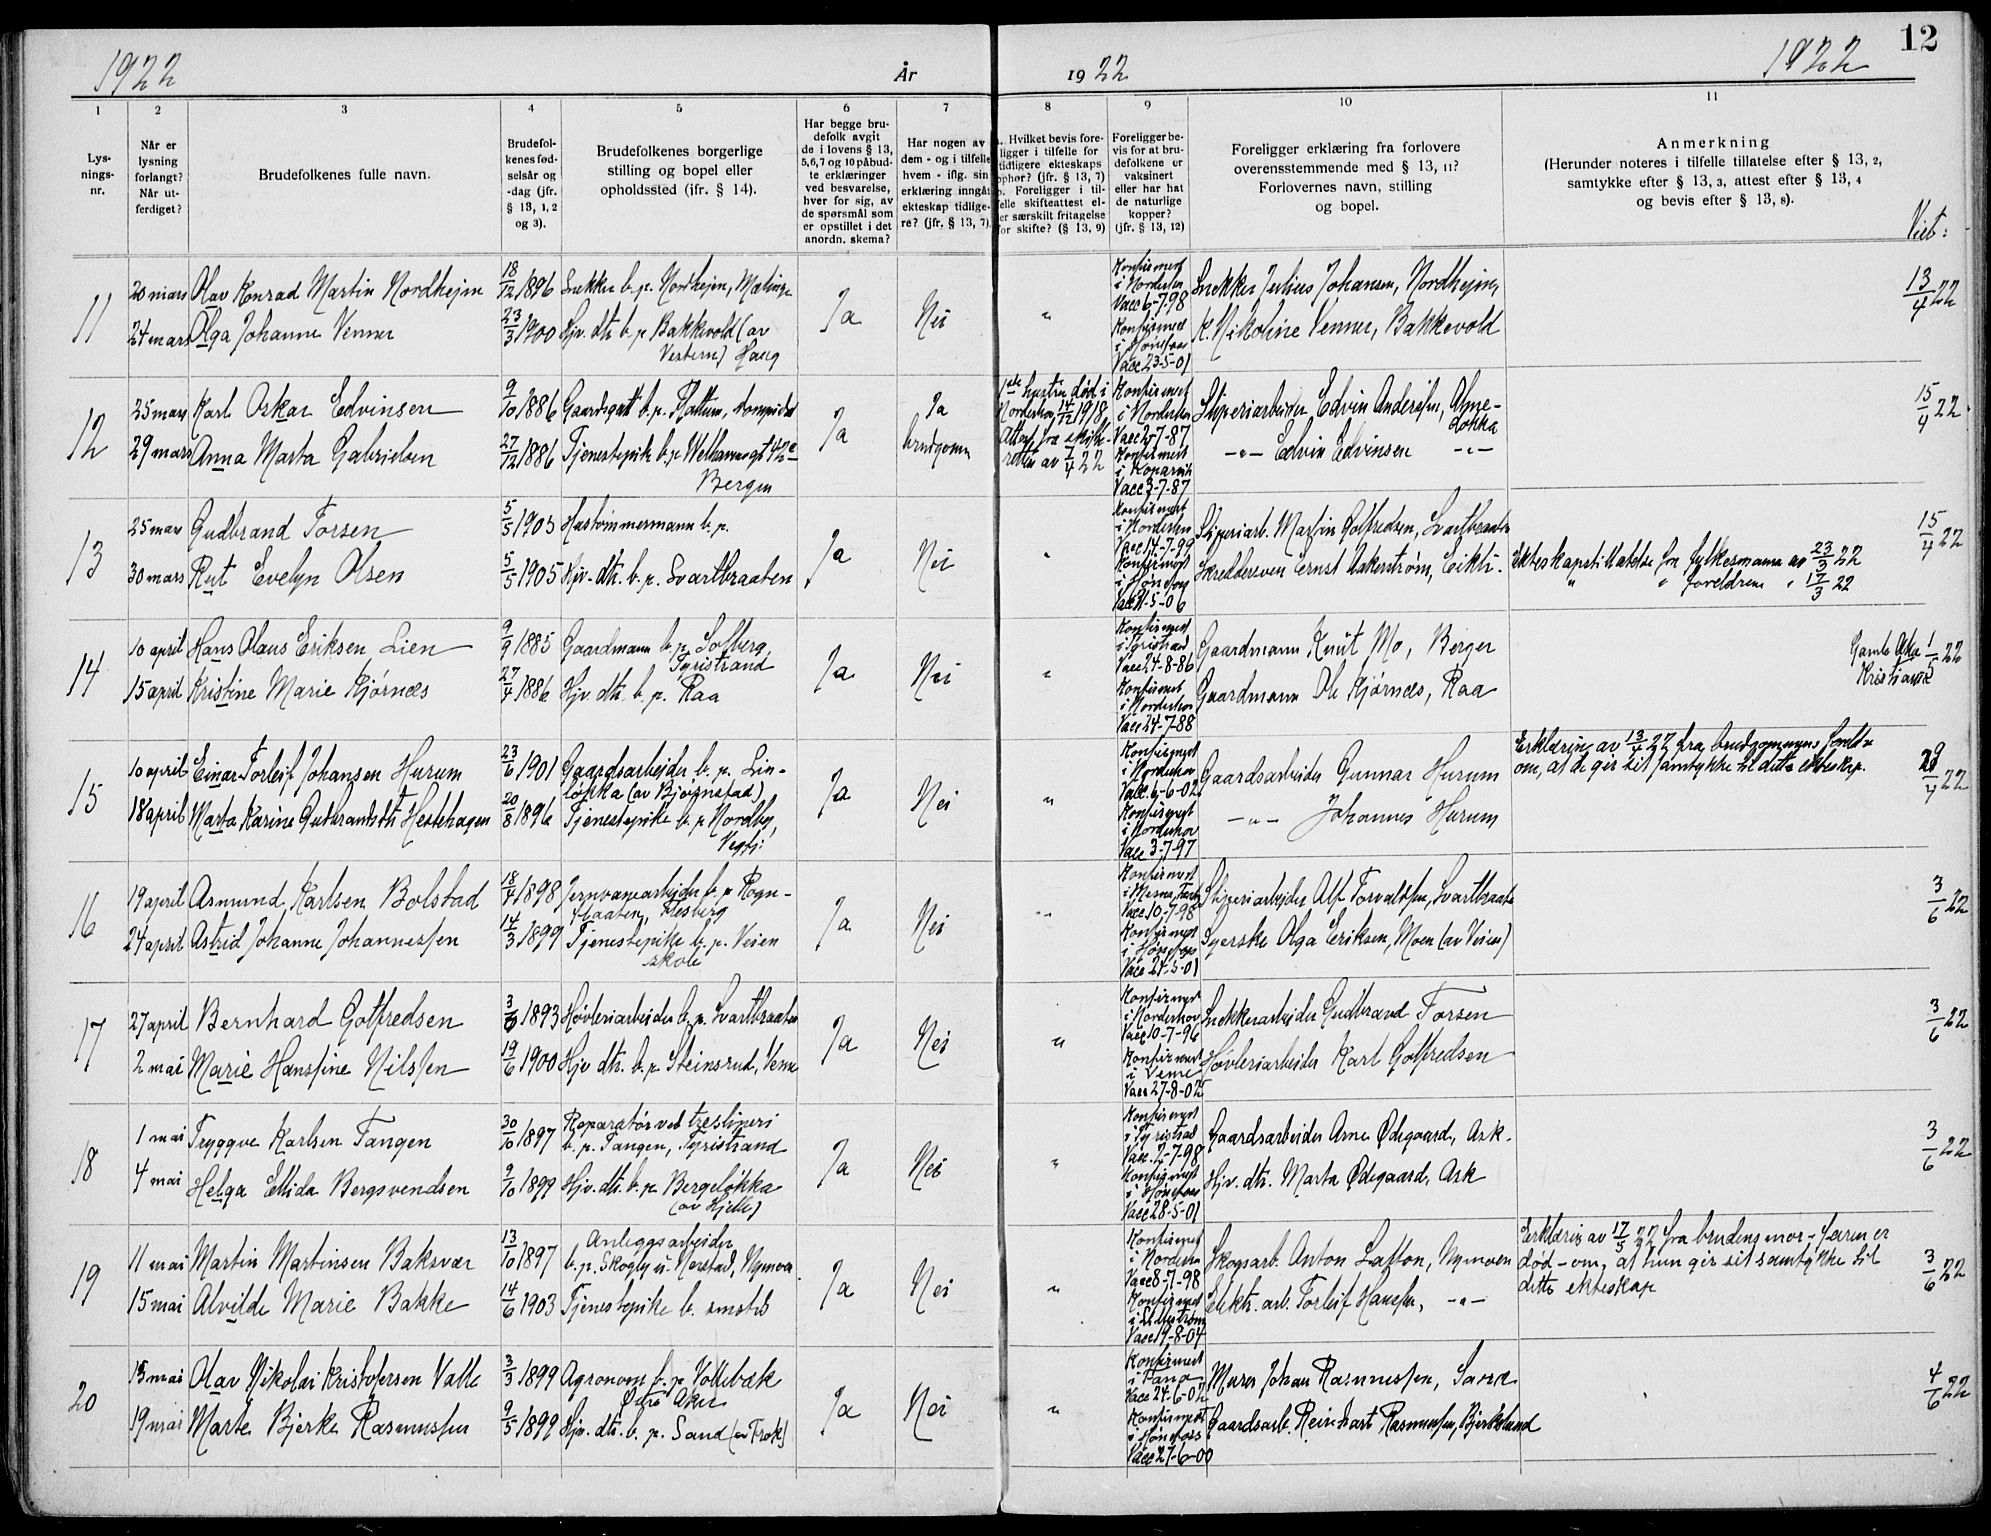 1922
År
19 22
1922
12
1
2
3
4
5
6
7
8
9
10
11
Lys-
nings-
nr.
Når er
lysning
forlangt?
Når ut-
ferdiget?
Brudefolkenes fulle navn.
Brudefol-
kenes fød-
selsår og
-dag (jfr.
§ 13, 1, 2
og 3).
Brudefolkenes borgerlige
stilling og bopel eller
opholdssted (ifr. § 14).
Har begge bru-
defolk avgit
de i lovens § 13,
5,6,7 og 10 påbud-
te erklæringer
ved besvarelse,
hver for sig, av
de spørsmål som
er opstillet i det
anordn. skema?
Har nogen av
dem - og i tilfelle
hvem - iflg. sin
erklæring inngåt
ekteskap tidlige-
re? (jfr. § 13, 7)
. Hvilket bevis fore-
ligger i tilfelle for
tidligere ekteskaps
ophør? (jfr. § 13, 7)
. Foreligger i til-
felle skifteattest el-
er særskilt fritagelse
for skifte? (§ 13, 9)
Foreligger be-
vis for at bru-
defolkene er
vaksinert
eller har hat
de naturlige
kopper?
(jfr. § 13, 12)
Foreligger erklæring fra forlovere
overensstemmende med § 13, 11?
Forlovernes navn, stilling
og bopel.
Anmerkning
(Herunder noteres i tilfelle tillatelse efter § 13, 2,
samtykke efter § 13, 3, attest efter § 13, 4
og bevis efter § 13, 8).
Viet:
11
20 mars Olav Konrad Martin Nordhejm 18/12 1896 Snekker b. p. Nordhejm,
24 mars Olga Johanne Venner 23/3 1900 Hjv. dtr. b. p. Bakkevold (av
Vestern) Haug
Ja
Nei
"
Konfirmert
i Norderhov
Vacc 6-7-98
Konfirmert
i Hønefoss
Vacc 23-5-01
Snekker Julius Johansen, Nordhejm,
K. Nikoline Venner, Bakkevold
13/4 22
12
25 mars Karl Oskar Edvinsen 9/10 1886 b. p.
29 mars Anna Marta Gabrielsen 27/12 1886 Tjenestepike b. p.
Bergen
Ja
Ja
brudgomm
1ste hustru død i
Norderhov 14/12 1918,
Attest fra skifte-
retten av 1/4 22
Konfirmert
i Norderhov
Vacc 2-7-87
Konfirmert
i Kopervik
Vacc 3-7-87
Sliperiarbeider Edvin Anderssen, Alme-
løkka
-"- Edvin Edvinsen -"-
15/4 22
13
25 mars Gudbrand Torsen 5/5 1903 Hustømmermann b. p.
30 mars Rut Evelyn Olsen 5/5 1905 Hjv. dtr. b. p. Svartbraaten
Ja
Nei
"
Konfirmert
i Norderhov
Vacc 14-7-99
Konfirmert
i Hønefoss
Sliperiarb. Martin Golfredsen, Svartbraaten
Ernst Aakerstrøm, Eikli.
Ekteskapstillatelse fra fylkesmann av 23/3 22
" " foreldrene " 17/3 22
15/4 22
14
10 april Hans Olaus Eriksen Lien 9/9 1885 Gaardmann b. p. Solberg,
Tyristrand
15 april Kristine Marie Kjørnæs 27/4 1886 Hjv. dtr. b. p. Raa
Ja
Nei
"
Konfirmert
i Tyristrand
Vacc 24-8-86
Konfirmert
i Norderhov
Vacc 24-7-88
Gaardmann Knut Mo, Berger
Gaardmann Ole Kjørnæs, Raa
Gamle Aker 1/5 22
15
10 april Einar Torleif Johansen Hurum 23/6 1901 Gaardsarbeider b. p. Lin-
løkka (av Bjørnstad)
18 april Marta Karine Gudbrandsdtr Hestehagen 20/8 1896 Tjenestepike b. p. Nordby,
Ja
Nei
"
Konfirmert
i Norderhov
Vacc. 6-6-02
Konfirmert
i Norderhov
Vacc 3-7-97
Gaardsarbeider Gunnar Hurum
-"- Johannes Hurum
Erklæring av 13/4 22 fra brudgommens foreldre
om, at de gir sit samtykke til dette ekteskap.
16
19 april Asmund Karlsen Bolstad 18/4 1898 Jernvarearbeider b. p. Rogn-
flaaten, Flesberg
24 april Astrid Johanne Johannessen 14/3 1899 Tjenestepike b. p. Veien
skole
Ja
Nei
"
Konfirmert
Vacc 10-7-98
Konfirmert
i Hønefoss
Vacc 24-5-01
Sliperiarbeider Alf Torvaldsen, Svartbraaten
Syerske Olga Eriksen, Moen (av Veien)
3/6 22
17
27 april Bernhard Golfredsen 1893 Høvleriarbeider b. p. Svartbraaten
2 mai Marie Hansine Nilsen 19/6 1900 Hjv dtr. b. p. Steinsrud, Veme
Ja
Nei
"
Konfirmert
i Norderhov
Vacc 10-7-96
Konfirmert
i Veme
Vacc 27-8-02
Snekkerarbeider Gudbrand Torsen
Høvleriarbeider Karl Golfredsen
3/6 22
18
1 mai Tryggve Karlsen Tangen 30/10 1897 Reparatør ved tresliperi
b. p. Tangen, Tyristrand
4 mai Helga Ellida Bergsvendsen 9/10 1899 Hjv. dtr. b. p. Bergeløkka
(av Hjelle)
Ja
Nei
"
Konfirmert
i Tyristrand
Vacc. 2-7-98
Konfirmert
i Hønefoss
Vacc 28-5-01
Gaardsarbeider Arne Ødegaard, Ask.
Hjv. dtr. Marta Ødegaard, Ask
3/6 22
19
11 mai Martin Martinsen Baksvær 13/10 1897 Anleggsarbeider
b. p. Skogly u. Norstad, Nymoen
15 mai Alvilde Marie Bakke 14/6 1903 Tjenestepike b. smsts
Ja
Nei
"
Konfirmert
i Norderhov
Vacc 8-7-98
Konfirmert
i Lillestrøm
Vacc 19-8-04
Skogsarb. Anton Lafton, Nymoen
Elektr. arb. Torleif Hansen, -"-
Erklæring av 17/5 22 fra brudens mor - faren er
død - om, at hun gir sit samtykke til
dette ekteskap
3/6 22
20
15 mai Olav Nikolai Kristofersen Valle 3/3 1899 Agronom b. p. Vollebæk
Østre Aker
19 mai Marte Bjerke Rasmussen 9/5 1899 Hjv. dtr. b. p. Sand (av Frok)
Ja
Nei
"
Konfirmert
i Fana
Vacc 24-6-02
Konfirmert
i Hønefoss
Vacc 27-6-00
Murer Johan Rasmussen, Sand
Gaardsarb. Reinhart Rasmussen, Bjerkelund
4/6 22